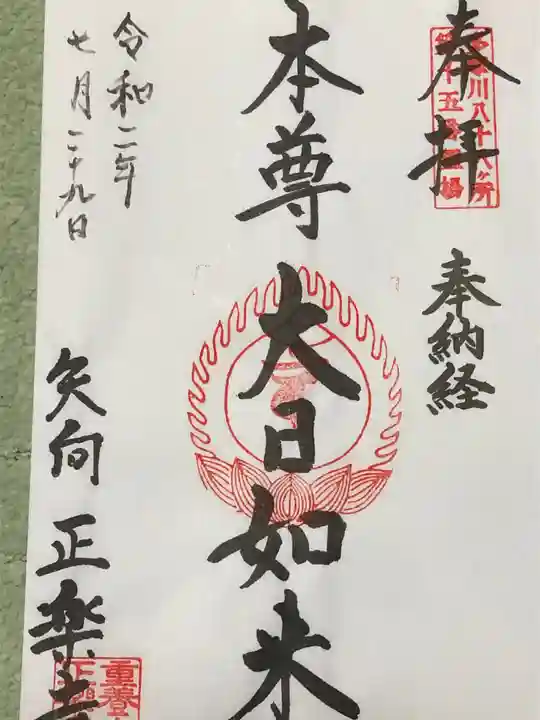 奉拝
川八十八ヶ所
十五
奉納経
本尊大日如来
令和二年
七月二十九日
矢向
正楽寺
重養
正